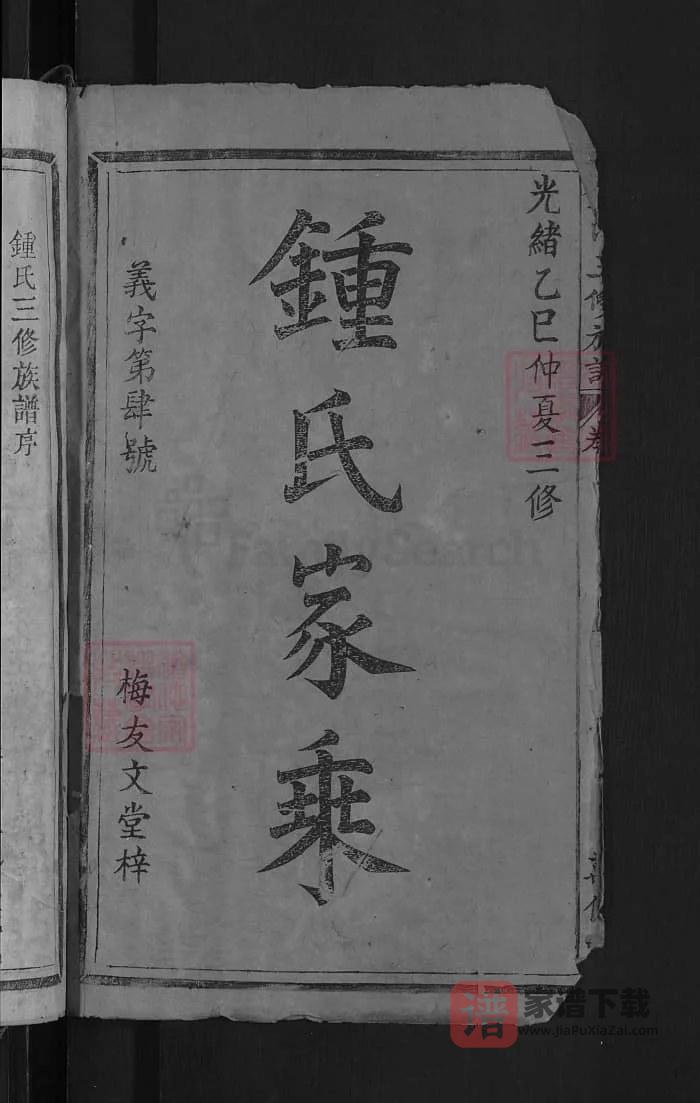 光緒乙巳仲夏三修
鍾氏家乘
義字第肆號
梅友文堂梓
鍾氏三修族譜序
FamilySearch
谱
家谱下载
www.JiaPuXiaZai.com